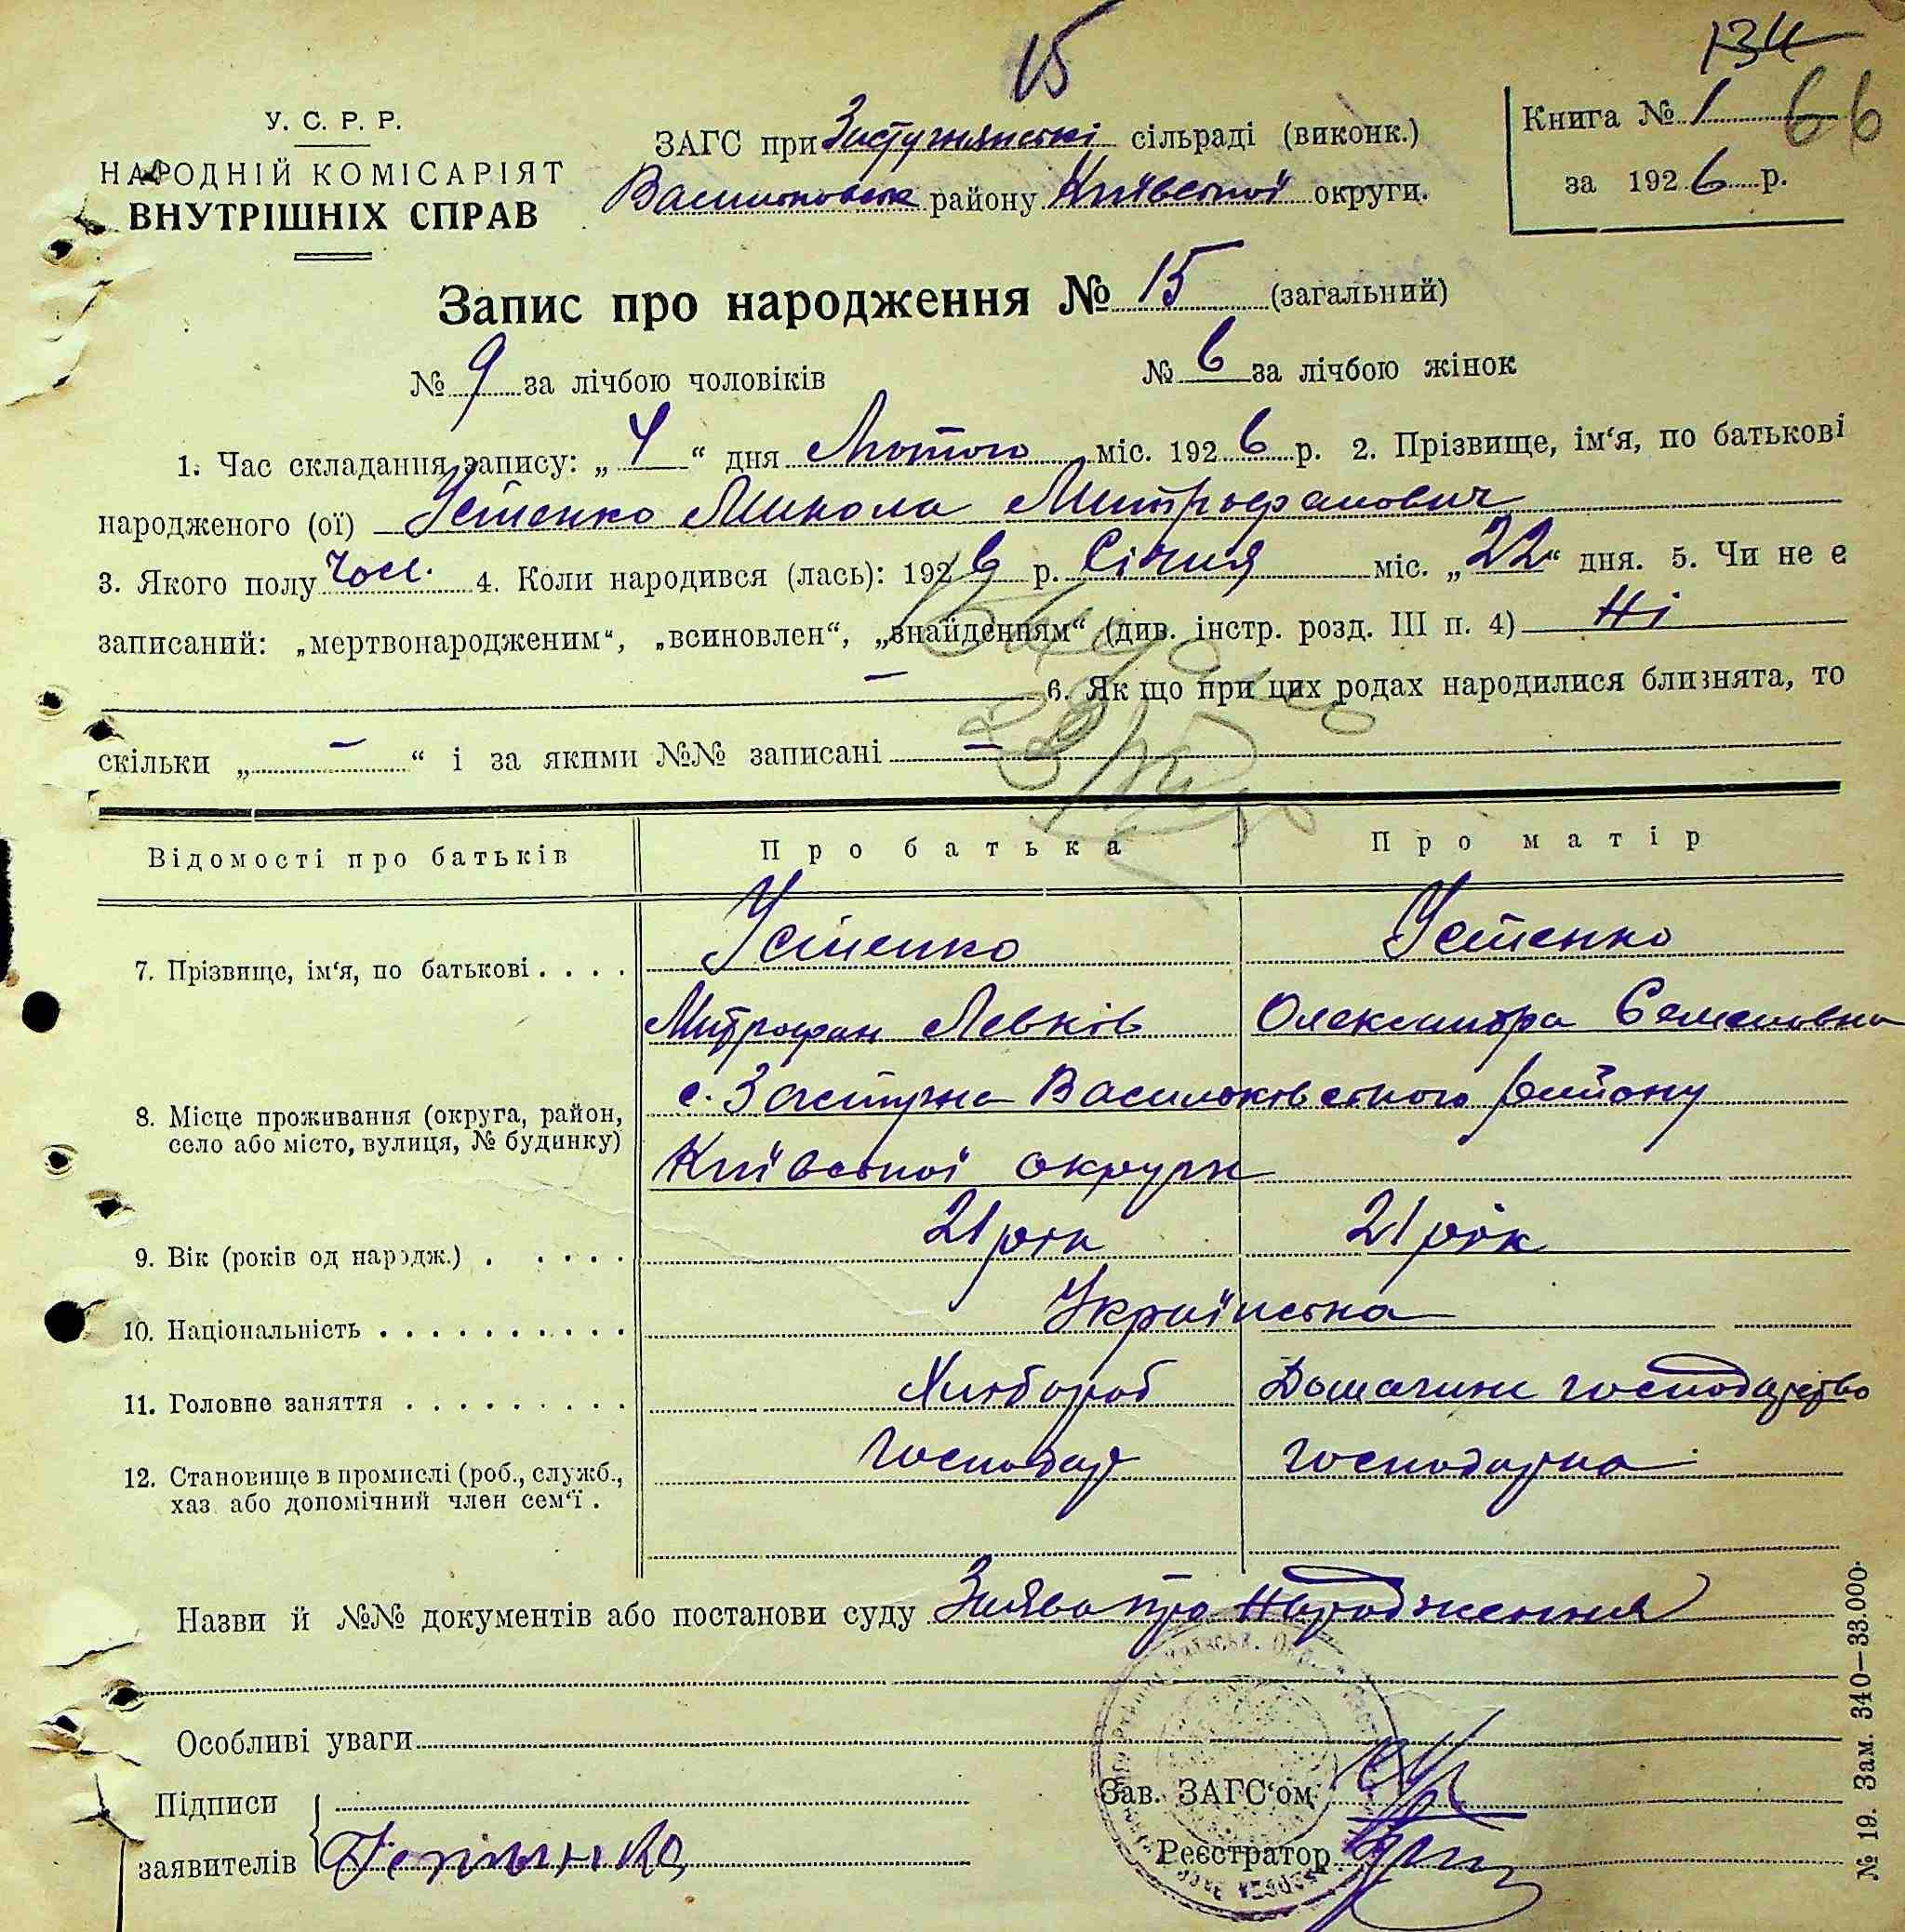 15
134
66
У. С. Р. Р.
НАРОДНІЙ КОМІСАРІЯТ
ВНУТРІШНІХ СПРАВ
ЗАГС при Застугнянські сільраді (виконк.)
Васильковськ району Київської округи.
Книга № 1
за 1926 р.
Запис про народження № 15 (загальний)
№ 9 за лічбою чоловіків № 6 за лічбою жінок
1. Час складання запису: „4“ дня Лютого міс. 1926 р. 2. Прізвище, ім‘я, по батькові
народженого (ої) Устенко Микола Митрофанович
3. Якого полу чол. 4. Коли народився (лась): 1926 р. Січня міс. „22“ дня. 5. Чи не є
записаний: „мертвонародженим“, „всиновлен“, „знайденням“ (див. інстр. розд. III п. 4) Ні
— 6. Як що при цих родах народилися близнята, то
скільки „ — “ і за якими №№ записані —
Відомості про батьків Про батька Про матір
7. Прізвище, ім‘я, по батькові . . . . Устенко Устенко
Митрофан Левків Олександра Семеновна
8. Місце проживання (округа, район, с. Застугна Васильковського району
село або місто, вулиця, № будинку) Київської округи
9. Вік (років од народж.) . . . . . 21 рік 21 рік
10. Національність . . . . . . . . . . Українська
11. Головне заняття . . . . . . . . . Хлібороб Домашнє господарство
12. Становище в промислі (роб., служб., Господар господарка
хаз. або допомічний член сем‘ї .
Назви й №№ документів або постанови суду Заява про Народження
Особливі уваги
Підписи
заявителів
Зав. ЗАГС‘ом
Реєстратор
№ 19. Зам. 340—33.000.